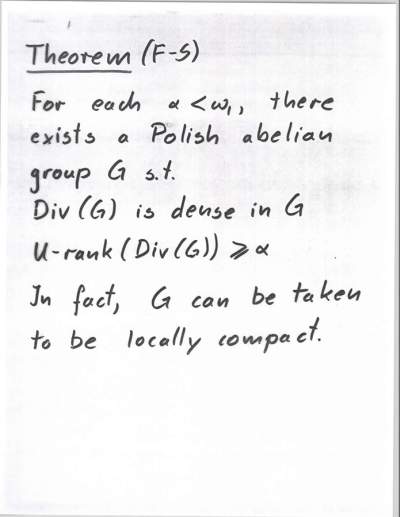 Theorem (F-S)
For each α < ω₁, there
exists a Polish abelian
group G s.t.
Div(G) is dense in G
U-rank (Div(G)) ⩾ α
In fact, G can be taken
to be locally compact.